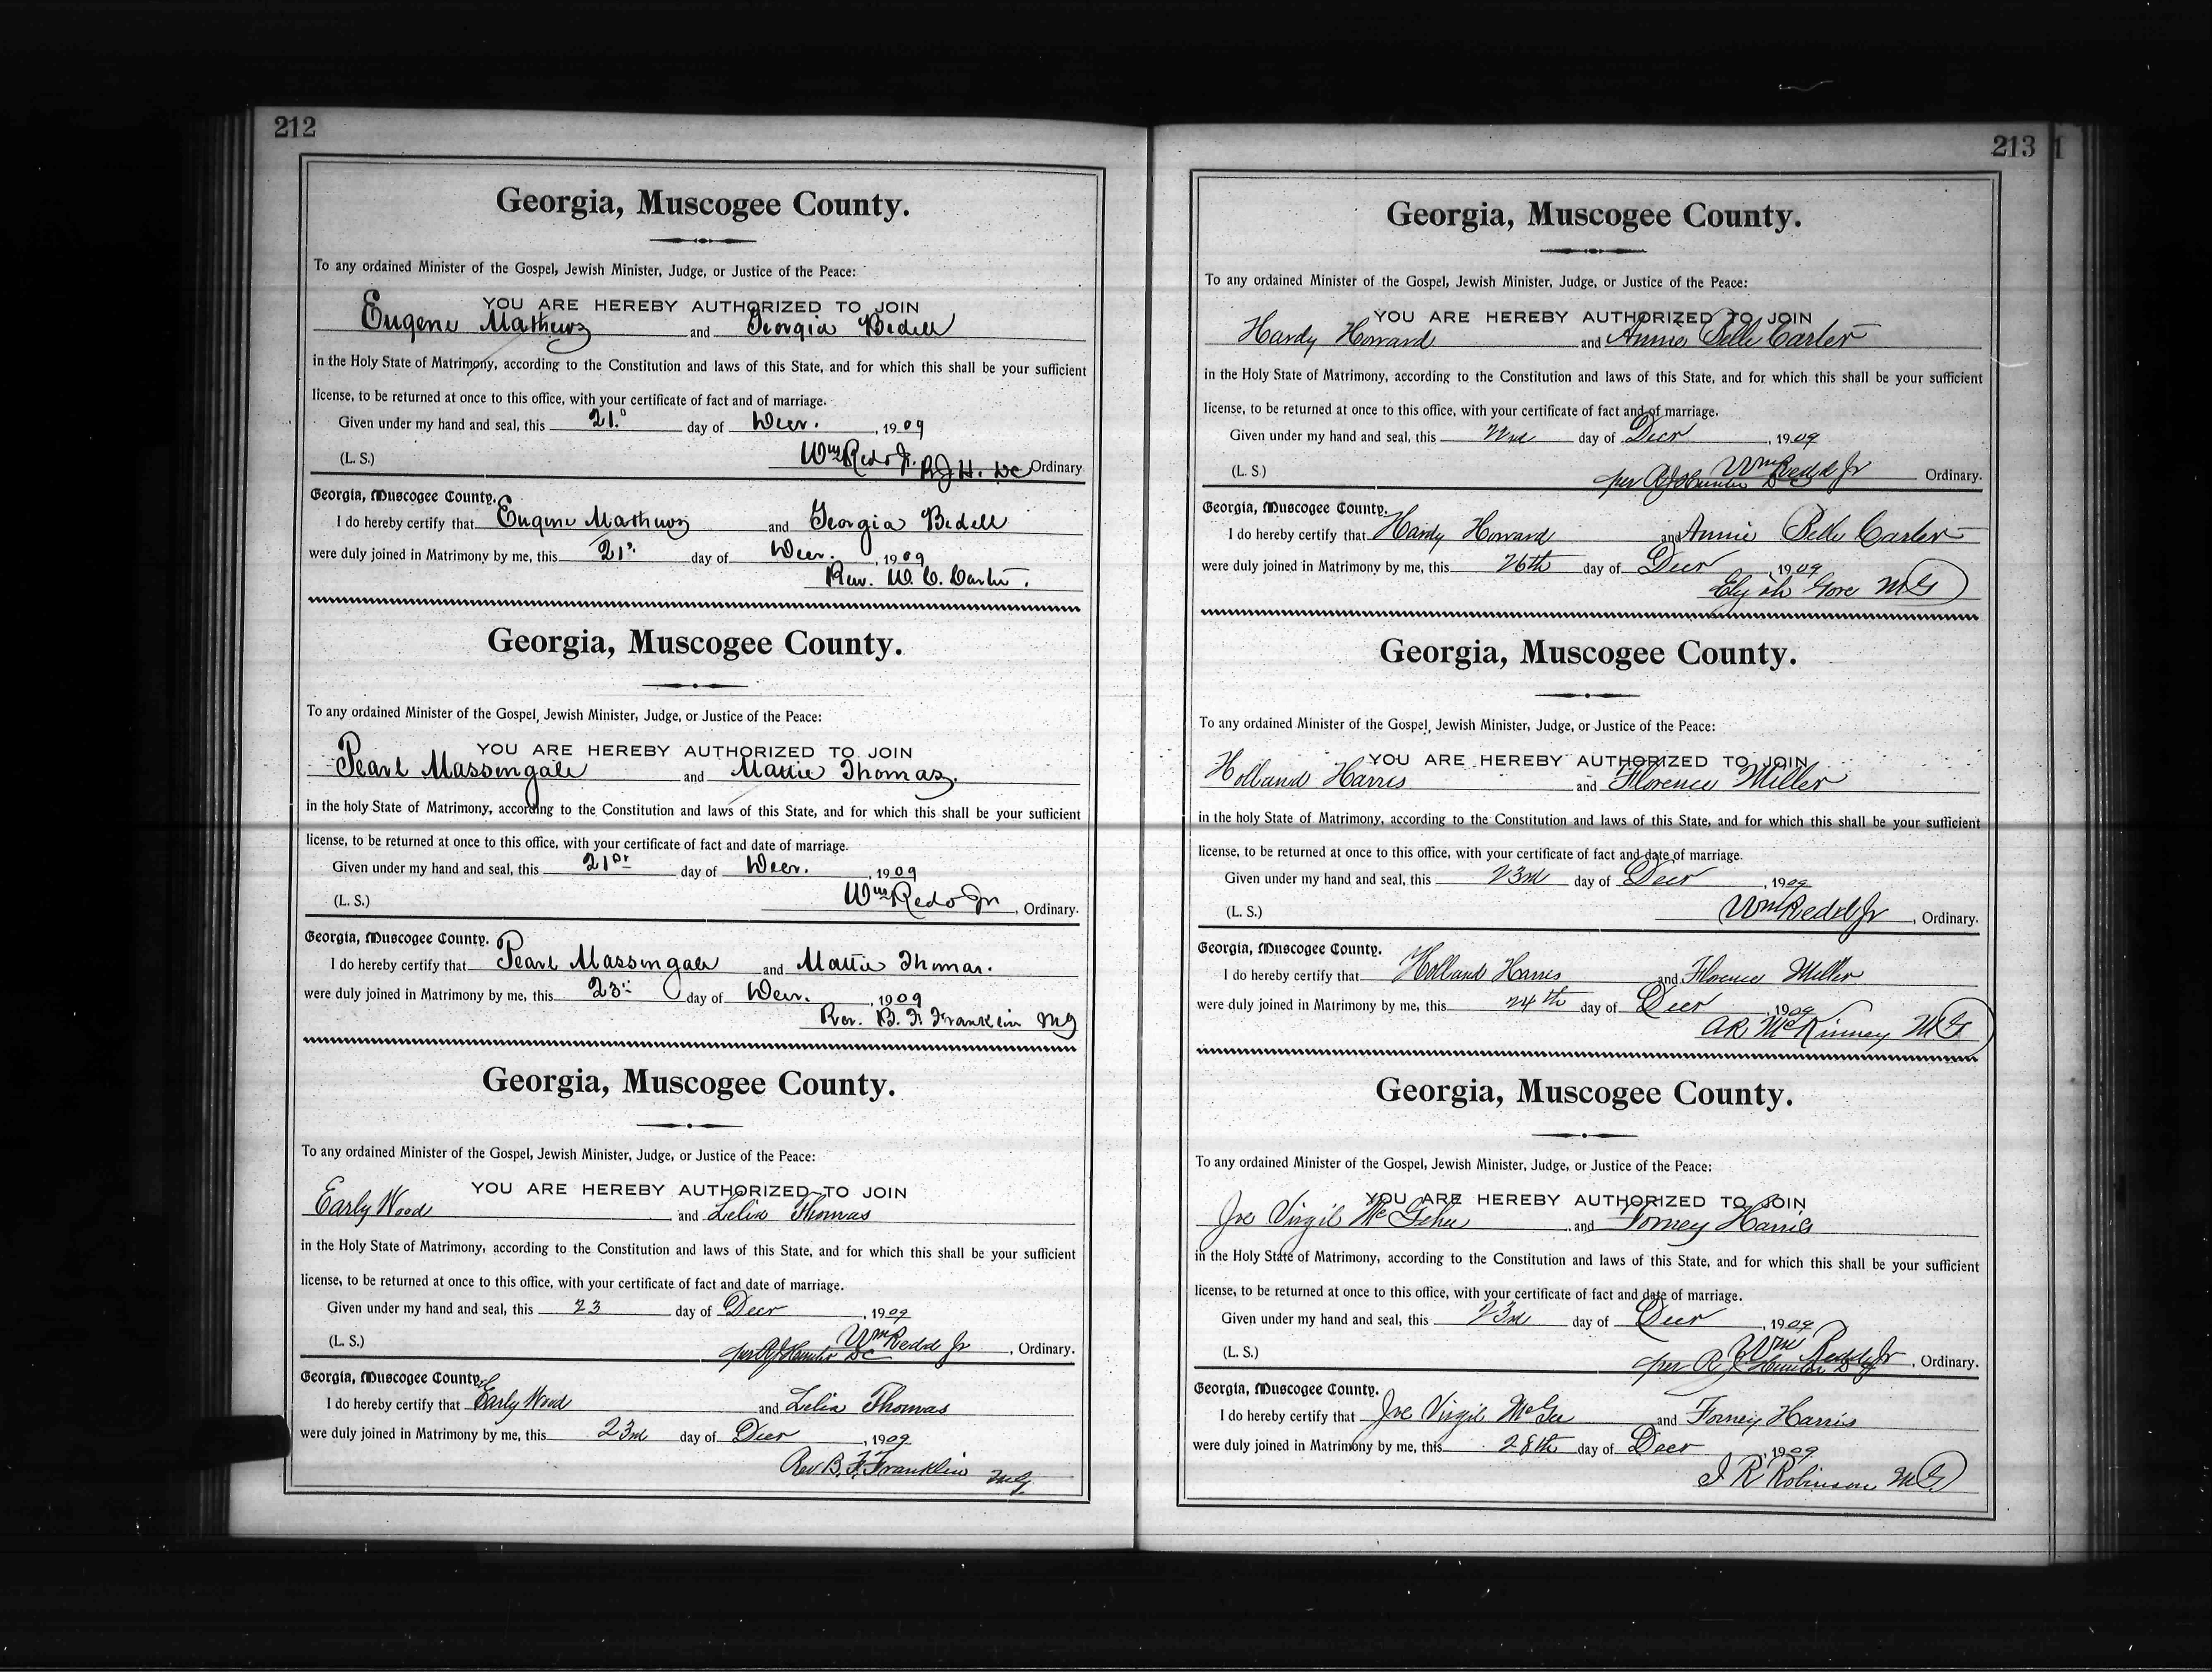 212
Georgia, Muscogee County.
To any ordained Minister of the Gospel, Jewish Minister, Judge, or Justice of the Peace:
YOU ARE HEREBY AUTHORIZED TO JOIN
Eugene Mathews and Georgia Bedell
in the Holy State of Matrimony, according to the Constitution and laws of this State, and for which this shall be your sufficient
license, to be returned at once to this office, with your certificate of fact and of marriage.
Given under my hand and seal, this 21s day of Decr. , 1909
(L. S.) Wm Redd Jr. R J H. DC Ordinary
Georgia, Muscogee County.
I do hereby certify that Eugene Mathews and Georgia Bedell
were duly joined in Matrimony by me, this 21s day of Decr. , 1909
Rev. W. C. Carter.
Georgia, Muscogee County.
To any ordained Minister of the Gospel, Jewish Minister, Judge, or Justice of the Peace:
YOU ARE HEREBY AUTHORIZED TO JOIN
Pearl Massengale and Mattie Thomas.
in the holy State of Matrimony, according to the Constitution and laws of this State, and for which this shall be your sufficient
license, to be returned at once to this office, with your certificate of fact and date of marriage.
Given under my hand and seal, this 21st day of Decr. , 1909
(L. S.) Wm Redd Jr , Ordinary.
Georgia, Muscogee County.
I do hereby certify that Pearl Massengale and Mattie Thomas.
were duly joined in Matrimony by me, this 23 day of Decr. , 1909
Rev. B. F. Franklin MG
Georgia, Muscogee County.
To any ordained Minister of the Gospel, Jewish Minister, Judge, or Justice of the Peace:
YOU ARE HEREBY AUTHORIZED TO JOIN
Early Wood and Lelia Thomas
in the Holy State of Matrimony, according to the Constitution and laws of this State, and for which this shall be your sufficient
license, to be returned at once to this office, with your certificate of fact and date of marriage.
Given under my hand and seal, this 23 day of Decr , 1909
(L. S.) Wm Redd Jr , Ordinary.
per R J Hunter DC
Georgia, Muscogee County.
I do hereby certify that Early Wood and Lelia Thomas
were duly joined in Matrimony by me, this 23rd day of Decr , 1909
Rev B. F. Franklin MG.
213
Georgia, Muscogee County.
To any ordained Minister of the Gospel, Jewish Minister, Judge, or Justice of the Peace:
YOU ARE HEREBY AUTHORIZED TO JOIN
Hardy Howard and Annie Belle Carter
in the Holy State of Matrimony, according to the Constitution and laws of this State, and for which this shall be your sufficient
license, to be returned at once to this office, with your certificate of fact and of marriage.
Given under my hand and seal, this 22nd day of Decr , 1909
(L. S.) Wm Redd Jr Ordinary.
per R J Hunter DC
Georgia, Muscogee County.
I do hereby certify that Hardy Howard and Annie Belle Carter
were duly joined in Matrimony by me, this 26th day of Decr , 1909
Elijah Gore MG
Georgia, Muscogee County.
To any ordained Minister of the Gospel, Jewish Minister, Judge, or Justice of the Peace:
YOU ARE HEREBY AUTHORIZED TO JOIN
Holland Harris and Florence Miller
in the holy State of Matrimony, according to the Constitution and laws of this State, and for which this shall be your sufficient
license, to be returned at once to this office, with your certificate of fact and date of marriage.
Given under my hand and seal, this 23rd day of Decr , 1909
(L. S.) Wm Redd Jr , Ordinary.
Georgia, Muscogee County.
I do hereby certify that Holland Harris and Florence Miller
were duly joined in Matrimony by me, this 24th day of Decr , 1909
AR McKinney MG
Georgia, Muscogee County.
To any ordained Minister of the Gospel, Jewish Minister, Judge, or Justice of the Peace:
YOU ARE HEREBY AUTHORIZED TO JOIN
Joe Virgil McGehee and Forney Harris
in the Holy State of Matrimony, according to the Constitution and laws of this State, and for which this shall be your sufficient
license, to be returned at once to this office, with your certificate of fact and date of marriage.
Given under my hand and seal, this 23rd day of Decr , 1909
(L. S.) Wm Redd Jr , Ordinary.
per R J Hunter DC
Georgia, Muscogee County.
I do hereby certify that Joe Virgil McGee and Forney Harris
were duly joined in Matrimony by me, this 28th day of Decr , 1909
I R Robinson MG